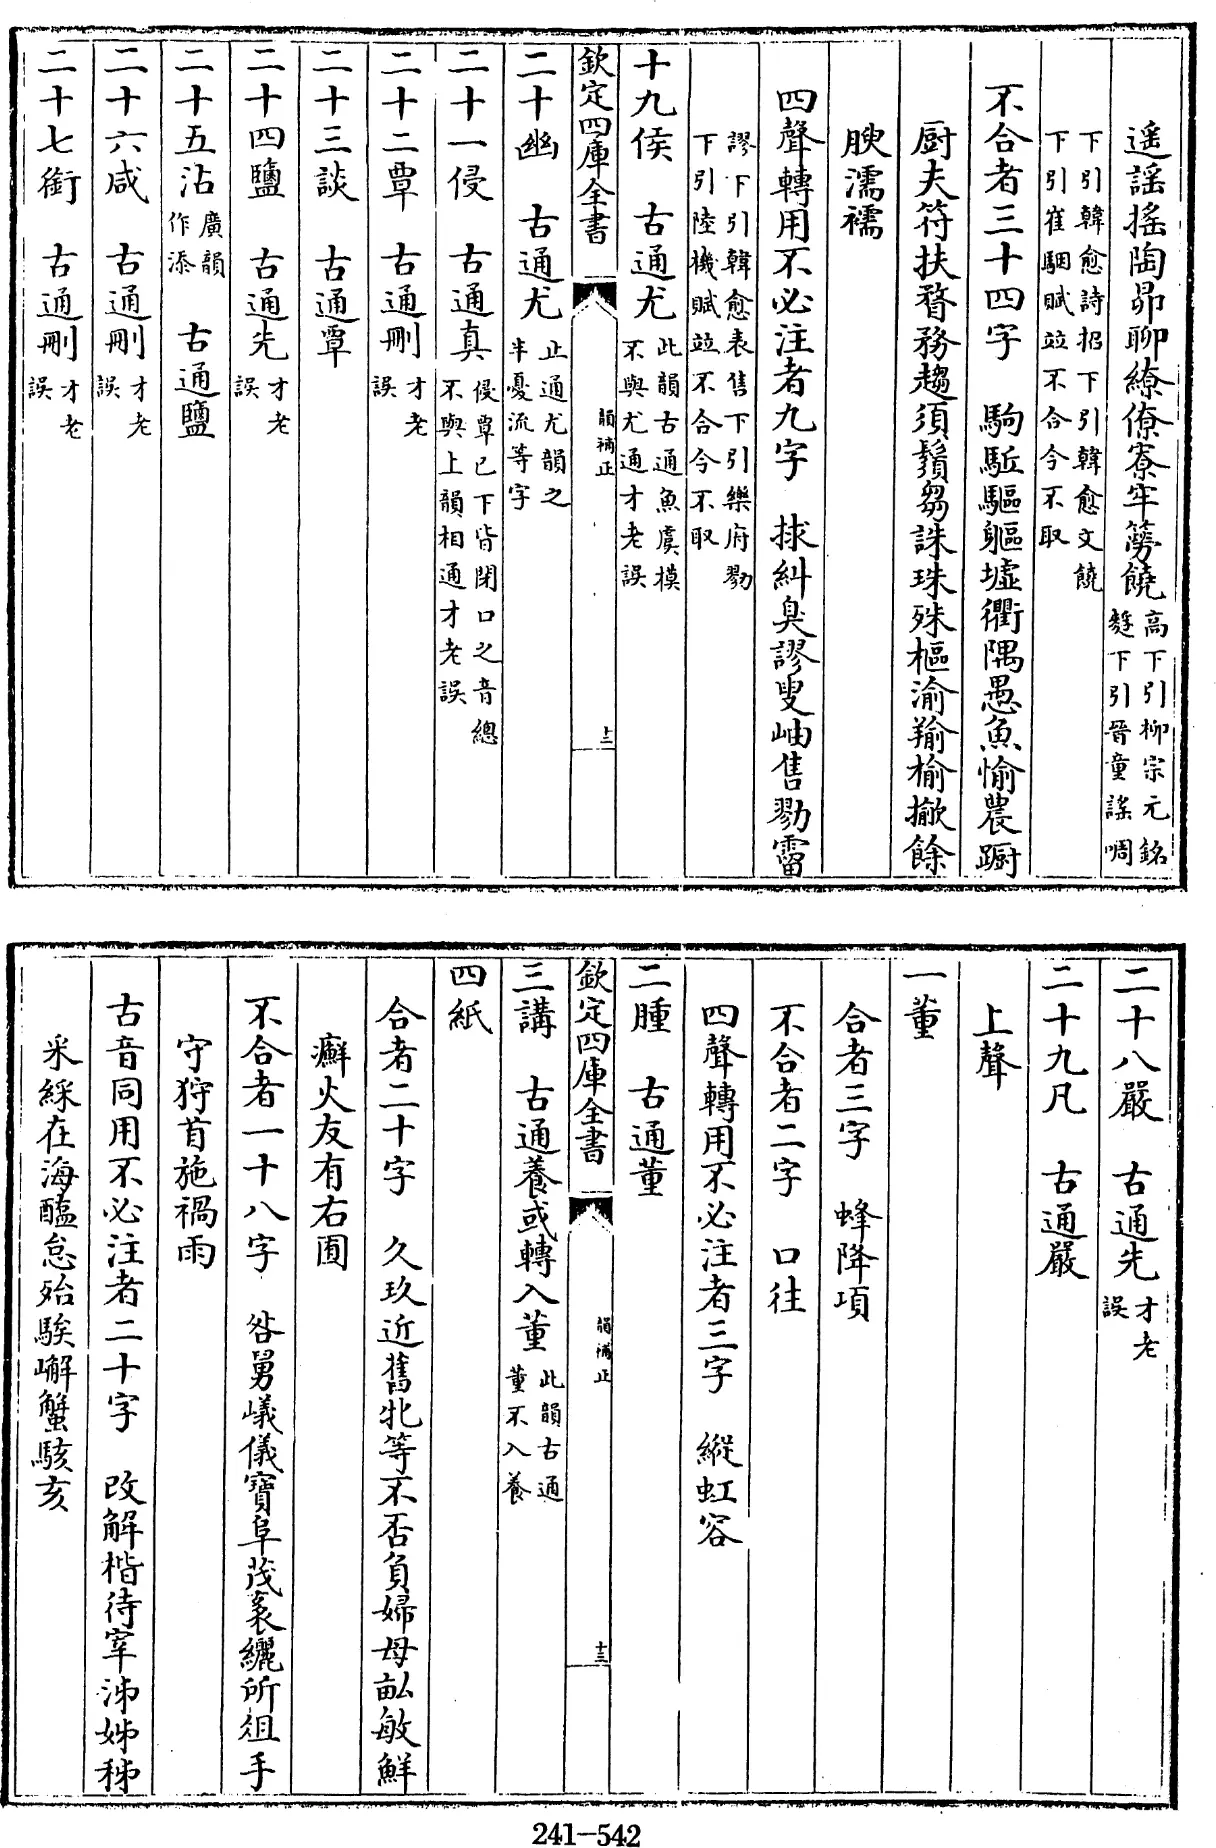 遥謡揺陶昴聊繚僚寮牢簩饒高下引柳宗元銘
𪍿下引晉童謡啁
下引韓愈詩招下引韓愈文饒
下引崔駰賦竝不合今不取
不合者三十四字　駒駈驅軀墟衢隅愚魚愉農蹰
厨夫符扶瞀務趨須鬚芻誅珠殊樞渝羭榆揄餘
腴濡襦
四聲轉用不必注者九字　捄糾臭謬叟岫售勠霤
謬下引韓愈表售下引樂府勠
下引陸機賦竝不合今不取
十九侯　古通尤此韻古通魚虞模
不與尤通才老誤
欽定四庫全書
韻補正
十二
二十幽　古通尤止通尤韻之
半憂流等字
二十一侵　古通真侵覃已下皆閉口之音總
不與上韻相通才老誤
二十二覃　古通刪才老
誤
二十三談　古通覃
二十四鹽　古通先才老
誤
二十五沾廣韻
作添　古通鹽
二十六咸　古通刪才老
誤
二十七銜　古通刪才老
誤
二十八嚴　古通先才老
誤
二十九凡　古通嚴
上聲
一董
合者三字　蜂降項
不合者二字　口往
四聲轉用不必注者三字　縱虹容
二腫　古通董
欽定四庫全書
韻補正
十三
三講　古通養或轉入董此韻古通
董不入養
四紙
合者二十字　久玖近舊牝等不否負婦母畝敏鮮
癬火友有右囿
不合者一十八字　咎舅嶬儀寶阜茂袤纚所俎手
守狩首施禍雨
古音同用不必注者二十字　改解楷待宰泲姊秭
采綵在海醢怠殆騃嶰蟹駭亥
241-542